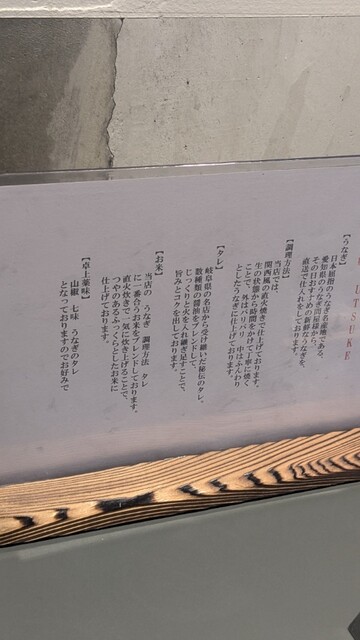 USUKE
【うなぎ】
日本屈指のうなぎ名産地である、
愛知県のうなぎ問屋様から、
その日おすすめの新鮮なうなぎを、
直送で仕入れをしております。
【調理方法】
当店では、
関西風の直火焼きで仕上げております。
生の状態から時間をかけて丁寧に焼く
ことで、外はパリッ、中はふんわり
としたうなぎに仕上げております。
【タレ】
岐阜県の名店から受け継いだ秘伝のタレ。
数種類の醤油をブレンドして、
じっくりと火を入れ継ぎ足すことで、
旨みとコクを出しております。
【お米】
当店の うなぎ 調理方法 タレ
に一番合うお米をブレンドしております。
直火炊き窯で一気に炊き上げることで、
つやのあるふっくらとしたお米に
仕上げております。
【卓上薬味】
山椒 七味 うなぎのタレ
となっておりますのでお好みで